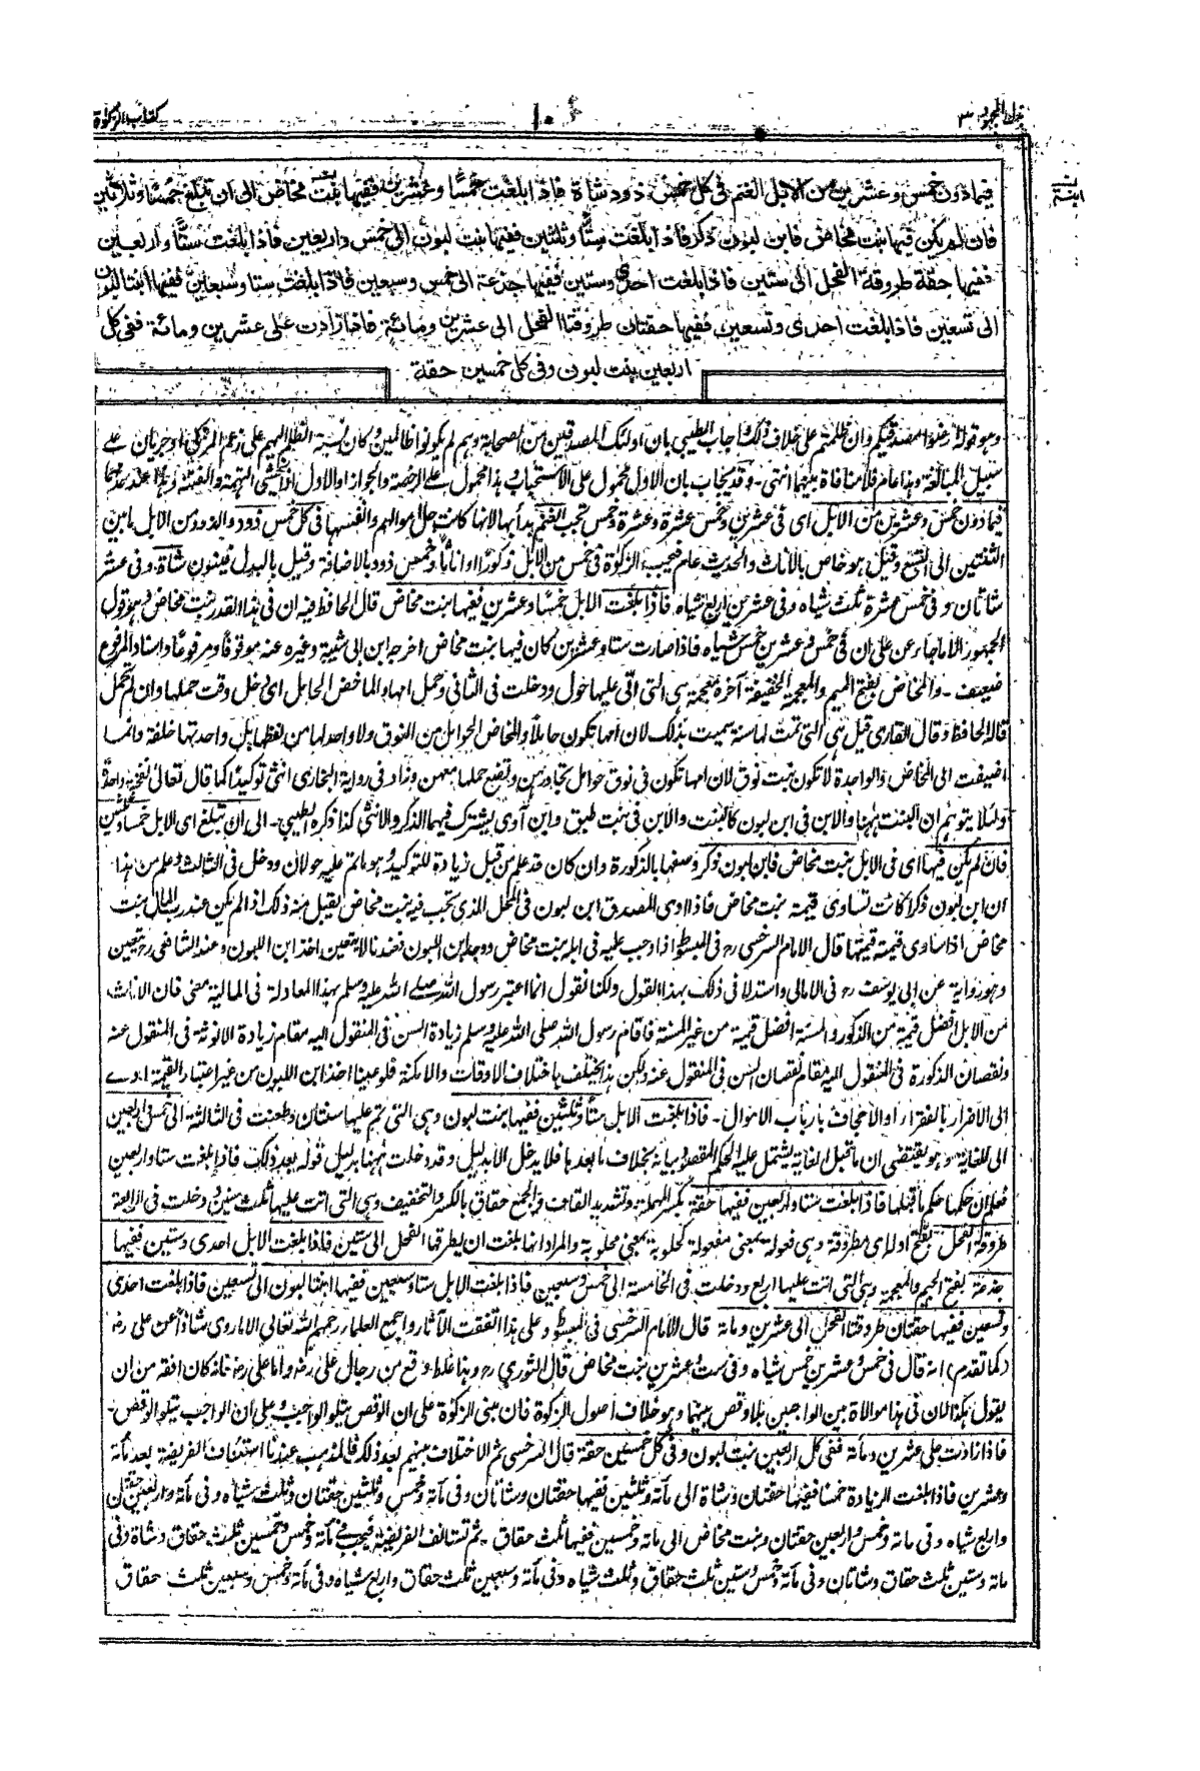 بذل المجهود ٣
١٠
كتاب الزكوة
فيما دون خمس وعشرين من الابل الغنم فى كل خمس ذود شاة فاذا بلغت خمسا وعشرين ففيها بنت مخاض الى ان تبلغ خمسا وثلاثين
فان لم يكن فيها بنت مخاض فابن لبون ذكر فاذا بلغت ستا وثلثين ففيها بنت لبون الى خمس واربعين فاذا بلغت ستا واربعين
ففيها حقة طروقة الفحل الى ستين فاذا بلغت احدى وستين ففيها جذعة الى خمس وسبعين فاذا بلغت ستا وسبعين ففيها ابنتا لبون
الى تسعين فاذا بلغت احدى وتسعين ففيها حقتان طروقتا الفحل الى عشرين ومائة فاذا زادت على عشرين ومائة ففى كل
اربعين بنت لبون وفى كل خمسين حقة
وهو قوله ارضوا مصدقيكم وان ظلمتم على خلاف ذلك واجاب الطيبى بان اولئك المصدقين من الصحابة وهم لم يكونوا ظالمين وكان نسبة الظلم اليهم على زعم المزكى او جريان على
سبيل المبالغة وهذا عام فلا منافاة بينهما انتهى ـ وقد يجاب بان الاول محمول على الاستحباب وهذا محمول على الرخصة والجواز او الاول اذا يخشى التهمة والفتنة وهذا عند عدمها
فيما دون خمس وعشرين من الابل اى فى عشرين وخمس عشرة وعشرة وخمس تجب الغنم بدأ بها لانها كانت جل اموالهم وانفسها فى كل خمس ذود والذود من الابل ما بين
الثنتين الى التسع وقيل هو خاص بالاناث والحديث عام فيجب الزكوة فى خمس من الابل ذكورا او اناثا وخمس ذود بالاضافة وقيل بالبدل فينون شاة وفى عشر
شاتان وفى خمس عشرة ثلث شياه وفى عشرين اربع شياه فاذا بلغت الابل خمسا وعشرين ففيها بنت مخاض قال الحافظ فيه ان فى هذا القدر بنت مخاض وهو قول
الجمهور الا ما جاء عن على ان فى خمس وعشرين خمس شياه فاذا صارت ستا وعشرين كان فيها بنت مخاض اخرجه ابن ابى شيبة وغيره عنه موقوفا ومرفوعا واسناد المرفوع
ضعيف ـ والمخاض بفتح الميم والمعجمة الخفيفة آخره معجمة هى التى اتى عليها حول ودخلت فى الثانى وحمل امها والماخض الحامل اى دخل وقت حملها وان لم تحمل
قاله الحافظ وقال القارى قيل هى التى تمت لها سنة سميت بذلك لان امها تكون حاملا والمخاض الحوامل من النوق ولا واحد لها من لفظها بل واحدتها خلفة وانما
اضيفت الى المخاض والواحدة لا تكون بنت نوق لان امها تكون فى نوق حوامل تجاورهن وتضع حملها معهن وزاد فى رواية البخارى انثى توكيدا كما قال تعالى نفخة واحدة
ولئلا يتوهم ان البنت ههنا والابن فى ابن لبون كالبنت والابن فى بنت طبق وابن آوى يشترك فيهما الذكر والانثى كذا ذكره الطيبى ـ الى ان تبلغ اى الابل خمسا وثلثين
فان لم يكن فيها اى فى الابل بنت مخاض فابن لبون ذكر وصفها بالذكورة وان كان قد علم من قبل زيادة للتوكيد وهو ما تم عليه حولان ودخل فى الثالث وعلم من هذا
ان ابن لبون ذكرا كانت تساوى قيمة بنت مخاض فاذا ادى المصدق ابن لبون فى المحل الذى تجب فيه بنت مخاض يقبل منه ذلك اذا لم يكن عند رب المال بنت
مخاض اذا ساوى قيمته قيمتها قال الامام السرخسى ره فى المبسوط اذا وجب عليه فى ابله بنت مخاض ووجد ابن اللبون فعندنا لا يتعين اخذ ابن اللبون وعند الشافعى ره يتعين
وهو رواية عن ابى يوسف ره فى الامالى واستدلا فى ذلك بهذا القول ولكنا نقول انما اعتبر رسول الله صلى الله عليه وسلم بهذا المعادلة فى المالية معنى فان الاناث
من الابل افضل قيمة من الذكور والمسنة افضل قيمة من غير المسنة فاقام رسول الله صلى الله عليه وسلم زيادة السن فى المنقول اليه مقام زيادة الانوثة فى المنقول عنه
ونقصان الذكورة فى المنقول اليه مقام نقصان السن فى المنقول عنه ولكن هذا يختلف باختلاف الاوقات والامكنة فلو عينا اخذ ابن اللبون من غير اعتبار القيمة ادى
الى الاضرار بالفقراء او الاجحاف بارباب الاموال ـ فاذا بلغت الابل ستا وثلثين ففيها بنت لبون وهى التى تم عليها سنتان وطعنت فى الثالثة الى خمس واربعين
الى للغاية وهو يقتضى ان ما قبل الغاية يشتمل عليه الحكم المقصود بيانه بخلاف ما بعدها فلا يدخل الا بدليل وقد دخلت ههنا بدليل قوله بعد ذلك فاذا بلغت ستا واربعين
فعلم ان حكمها حكم ما قبلها فاذا بلغت ستا واربعين ففيها حقة بكسر المهملة وتشديد القاف والجمع حقاق بالكسر والتخفيف وهى التى اتت عليها ثلث سنين ودخلت فى الرابعة
طروقة الفحل بفتح اوله اى مطروقة وهى فعولة بمعنى مفعولة كحلوبة بمعنى محلوبة والمراد انها بلغت ان يطرقها الفحل الى ستين فاذا بلغت الابل احدى وستين ففيها
جذعة بفتح الجيم والمعجمة وهى التى اتت عليها اربع ودخلت فى الخامسة الى خمس وسبعين فاذا بلغت الابل ستا وسبعين ففيها ابنتا لبون الى تسعين فاذا بلغت احدى
وتسعين ففيها حقتان طروقتا الفحل الى عشرين ومائة قال الامام السرخسى فى المبسوط وعلى هذا اتفقت الآثار واجمع العلماء رحمهم الله تعالى الا ما روى شاذا عن على رضه
(كما تقدم) انه قال فى خمس وعشرين خمس شياه وفى ست وعشرين بنت مخاض قال الثورى ره وهذا غلط وقع من رجال على رضه واما على رضه فانه كان افقه من ان
يقول هكذا لان فى هذا موالاة بين الواجبين بلا وقص بينهما وهو خلاف اصول الزكوة فان مبنى الزكوة على ان الوقص يتلو الواجب وعلى ان الواجب يتلو الوقص ـ
فاذا زادت على عشرين ومائة ففى كل اربعين بنت لبون وفى كل خمسين حقة قال السرخسى ثم الاختلاف بينهم بعد ذلك فالمذهب عندنا استئناف الفريضة بعد مائة
وعشرين فاذا بلغت الزيادة خمسا ففيها حقتان وشاة الى مائة وثلثين ففيها حقتان وشاتان وفى مائة وخمس وثلثين حقتان وثلث شياه وفى مائة واربعين حقتان
واربع شياه وفى مائة وخمس واربعين حقتان وبنت مخاض الى مائة وخمسين ففيها ثلث حقاق ـ ثم تستانف الفريضة فيجب فى مائة وخمس وخمسين ثلث حقاق وشاة وفى
مائة وستين ثلث حقاق وشاتان وفى مائة وخمس وستين ثلث حقاق وثلث شياه وفى مائة وسبعين ثلث حقاق واربع شياه وفى مائة وخمس وسبعين ثلث حقاق